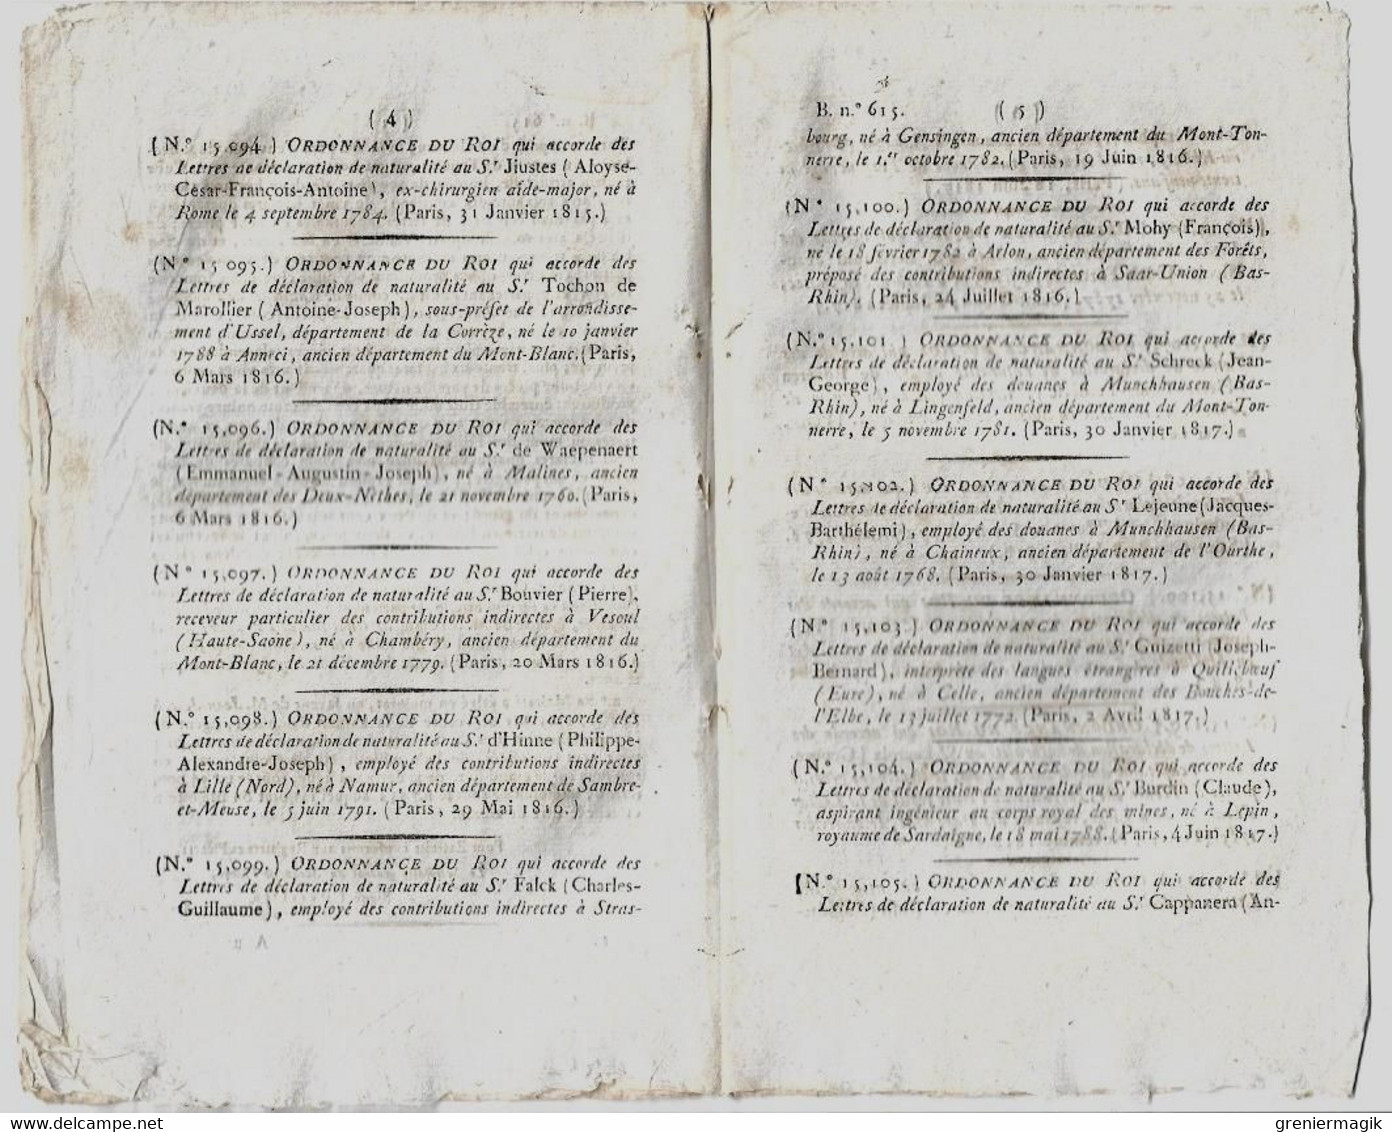 ( 4 )
(N.° 15,094.) ORDONNANCE DU ROI qui accorde des
Lettres de déclaration de naturalité au S.r Jiustes (Aloyse-
César-François-Antoine), ex-chirurgien aide-major, né à
Rome le 4 septembre 1784. (Paris, 31 Janvier 1815.)
(N.° 15,095.) ORDONNANCE DU ROI qui accorde des
Lettres de déclaration de naturalité au S.r Tochon de
Marollier (Antoine-Joseph), sous-préfet de l'arrondisse-
ment d'Ussel, département de la Corrèze, né le 10 janvier
1788 à Anneci, ancien département du Mont-Blanc. (Paris,
6 Mars 1816.)
(N.° 15,096.) ORDONNANCE DU ROI qui accorde des
Lettres de déclaration de naturalité au S.r de Waepenaert
(Emmanuel-Augustin-Joseph), né à Malines, ancien
département des Deux-Nèthes, le 21 novembre 1760. (Paris,
6 Mars 1816.)
(N.° 15,097.) ORDONNANCE DU ROI qui accorde des
Lettres de déclaration de naturalité au S.r Bouvier (Pierre),
receveur particulier des contributions indirectes à Vesoul
(Haute-Saone), né à Chambéry, ancien département du
Mont-Blanc, le 21 décembre 1779. (Paris, 20 Mars 1816.)
(N.° 15,098.) ORDONNANCE DU ROI qui accorde des
Lettres de déclaration de naturalité au S.r d'Hinne (Philippe-
Alexandre-Joseph), employé des contributions indirectes
à Lille (Nord), né à Namur, ancien département de Sambre-
et-Meuse, le 5 juin 1791. (Paris, 29 Mai 1816.)
(N.° 15,099.) ORDONNANCE DU ROI qui accorde des
Lettres de déclaration de naturalité au S.r Falck (Charles-
Guillaume), employé des contributions indirectes à Stras-
B. n.° 615. ( 5 )
bourg, né à Gensingen, ancien département du Mont-Ton-
nerre, le 1.er octobre 1782. (Paris, 19 Juin 1816.)
(N.° 15,100.) ORDONNANCE DU ROI qui accorde des
Lettres de déclaration de naturalité au S.r Mohy (François),
né le 18 février 1782 à Arlon, ancien département des Forêts,
préposé des contributions indirectes à Saar-Union (Bas-
Rhin). (Paris, 24 Juillet 1816.)
(N.° 15,101.) ORDONNANCE DU ROI qui accorde des
Lettres de déclaration de naturalité au S.r Schreck (Jean-
George), employé des douanes à Munchhausen (Bas-
Rhin), né à Lingenfeld, ancien département du Mont-Ton-
nerre, le 5 novembre 1781. (Paris, 30 Janvier 1817.)
(N.° 15,102.) ORDONNANCE DU ROI qui accorde des
Lettres de déclaration de naturalité au S.r Lejeune (Jacques-
Barthélemi), employé des douanes à Munchhausen (Bas-
Rhin), né à Chaineux, ancien département de l'Ourthe,
le 13 août 1768. (Paris, 30 Janvier 1817.)
(N.° 15,103.) ORDONNANCE DU ROI qui accorde des
Lettres de déclaration de naturalité au S.r Guizetti (Joseph-
Bernard), interprète des langues étrangères à Quillebœuf
(Eure), né à Celle, ancien département des Bouches-de-
l'Elbe, le 13 juillet 1772. (Paris, 2 Avril 1817.)
(N.° 15,104.) ORDONNANCE DU ROI qui accorde des
Lettres de déclaration de naturalité au S.r Burdin (Claude),
aspirant ingénieur au corps royal des mines, né à Lépin,
royaume de Sardaigne, le 18 mai 1788. (Paris, 4 Juin 1817.)
(N.° 15,105.) ORDONNANCE DU ROI qui accorde des
Lettres de déclaration de naturalité au S.r Cappanera (An-
greniermagik